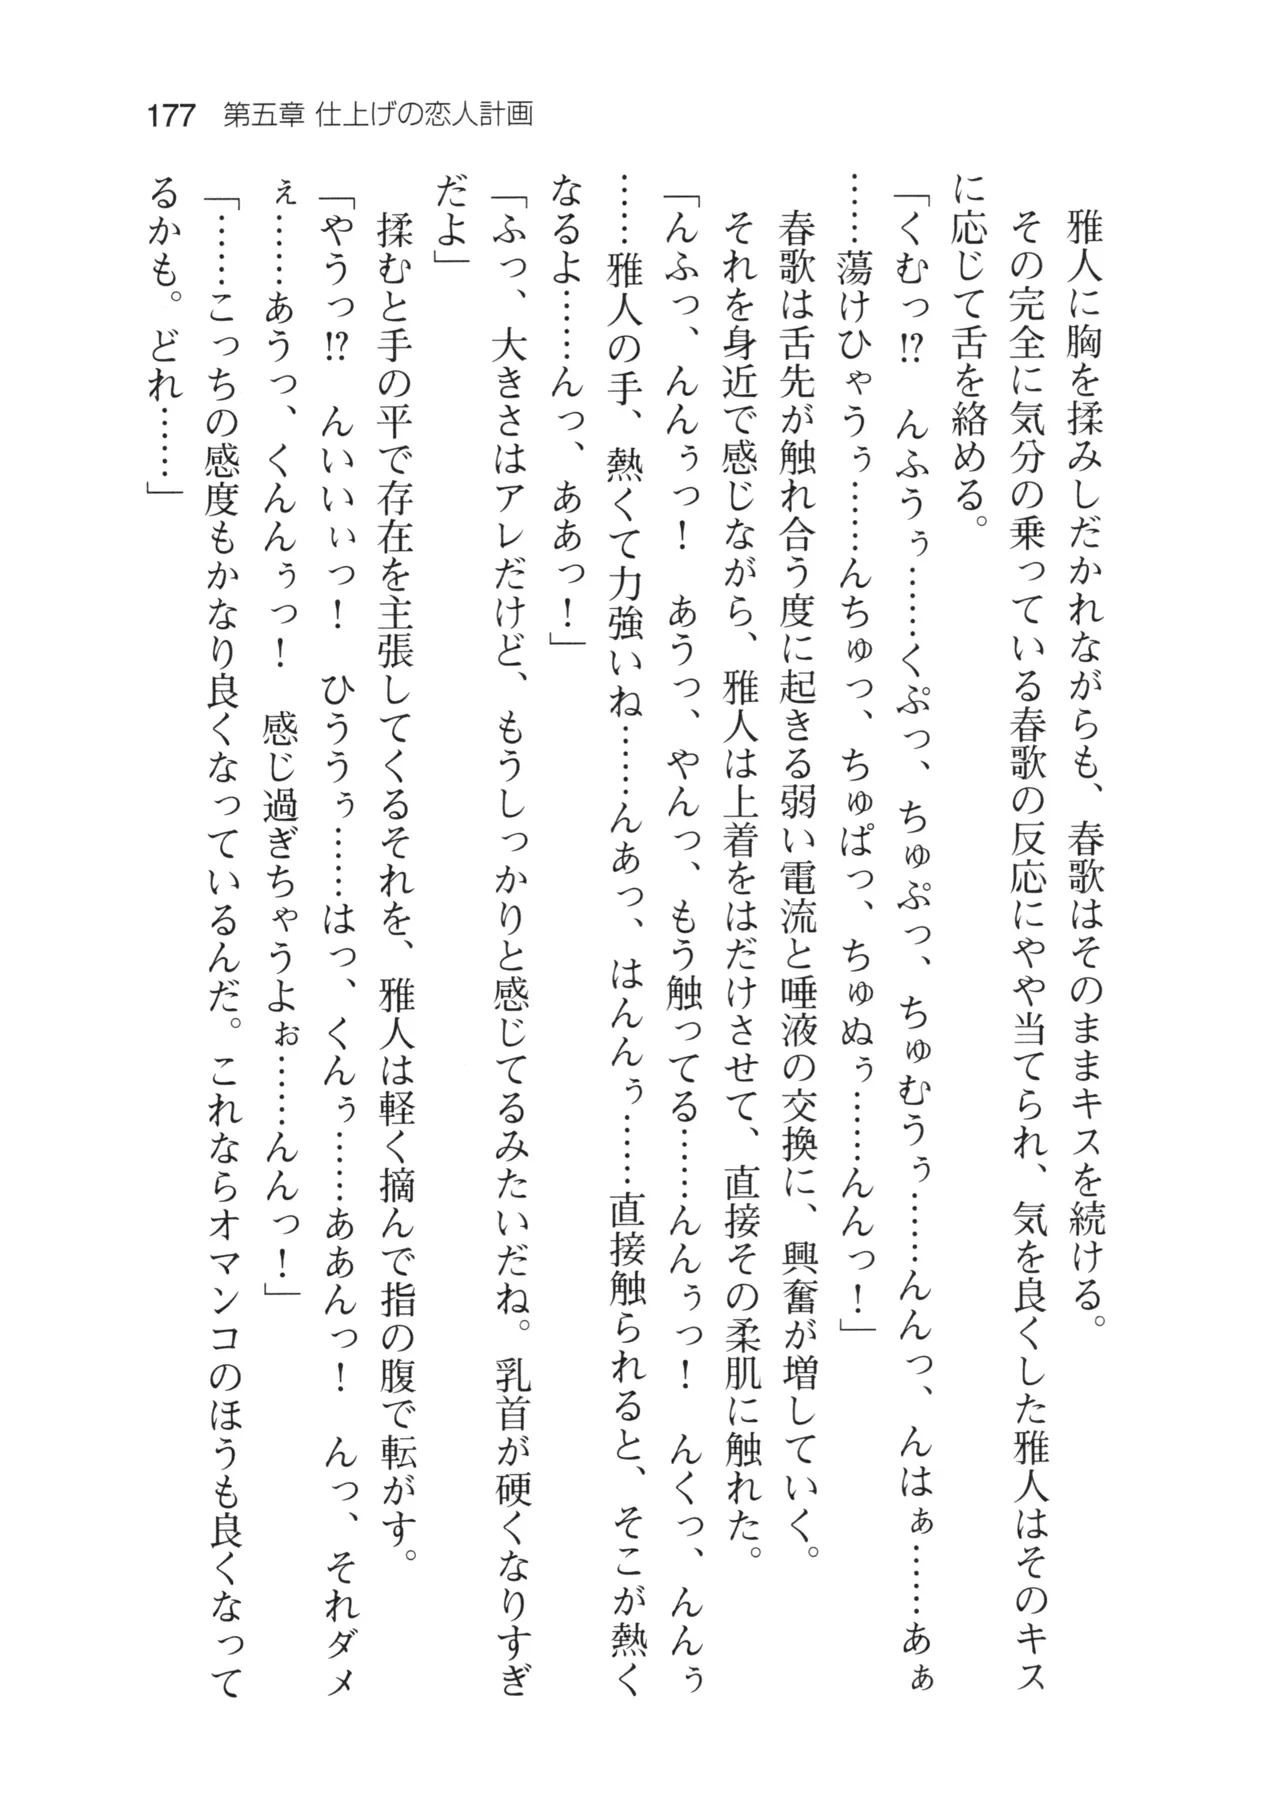 177 第五章 仕上げの恋人計画
　雅人に胸を揉みしだかれながらも、春歌はそのままキスを続ける。
　その完全に気分の乗っている春歌の反応にやや当てられ、気を良くした雅人はそのキス
に応じて舌を絡める。
「くむっ!?　んふうぅ……くぷっ、ちゅぷっ、ちゅむうぅ……んんっ、んはぁ……あぁ
……蕩けひゃうぅ……んちゅっ、ちゅぱっ、ちゅぬぅ……んんっ！」
　春歌は舌先が触れ合う度に起きる弱い電流と唾液の交換に、興奮が増していく。
　それを身近で感じながら、雅人は上着をはだけさせて、直接その柔肌に触れた。
「んふっ、んんぅっ！　あうっ、やんっ、もう触ってる……んんぅっ！　んくっ、んんぅ
……雅人の手、熱くて力強いね……んあっ、はんんぅ……直接触られると、そこが熱く
なるよ……んっ、ああっ！」
「ふっ、大きさはアレだけど、もうしっかりと感じてるみたいだね。乳首が硬くなりすぎ
だよ」
　揉むと手の平で存在を主張してくるそれを、雅人は軽く摘んで指の腹で転がす。
「やうっ!?　んいいぃっ！　ひううぅ……はっ、くんぅ……ああんっ！　んっ、それダメ
ぇ……あうっ、くんんぅっ！　感じ過ぎちゃうよぉ……んんっ！」
「……こっちの感度もかなり良くなっているんだ。これならオマンコのほうも良くなって
るかも。どれ……」